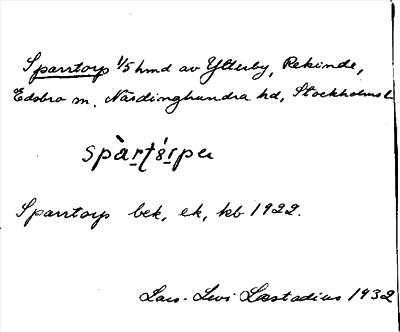 Sparrtorp 1/5 hmd av Ytterby, Rekinde,
Edsbro sn, Närdinghundra hd, Stockholms l.
spàrtǻrpeu
Sparrtorp bek, ek, kb 1922.
Lars-Levi Læstadius 1932